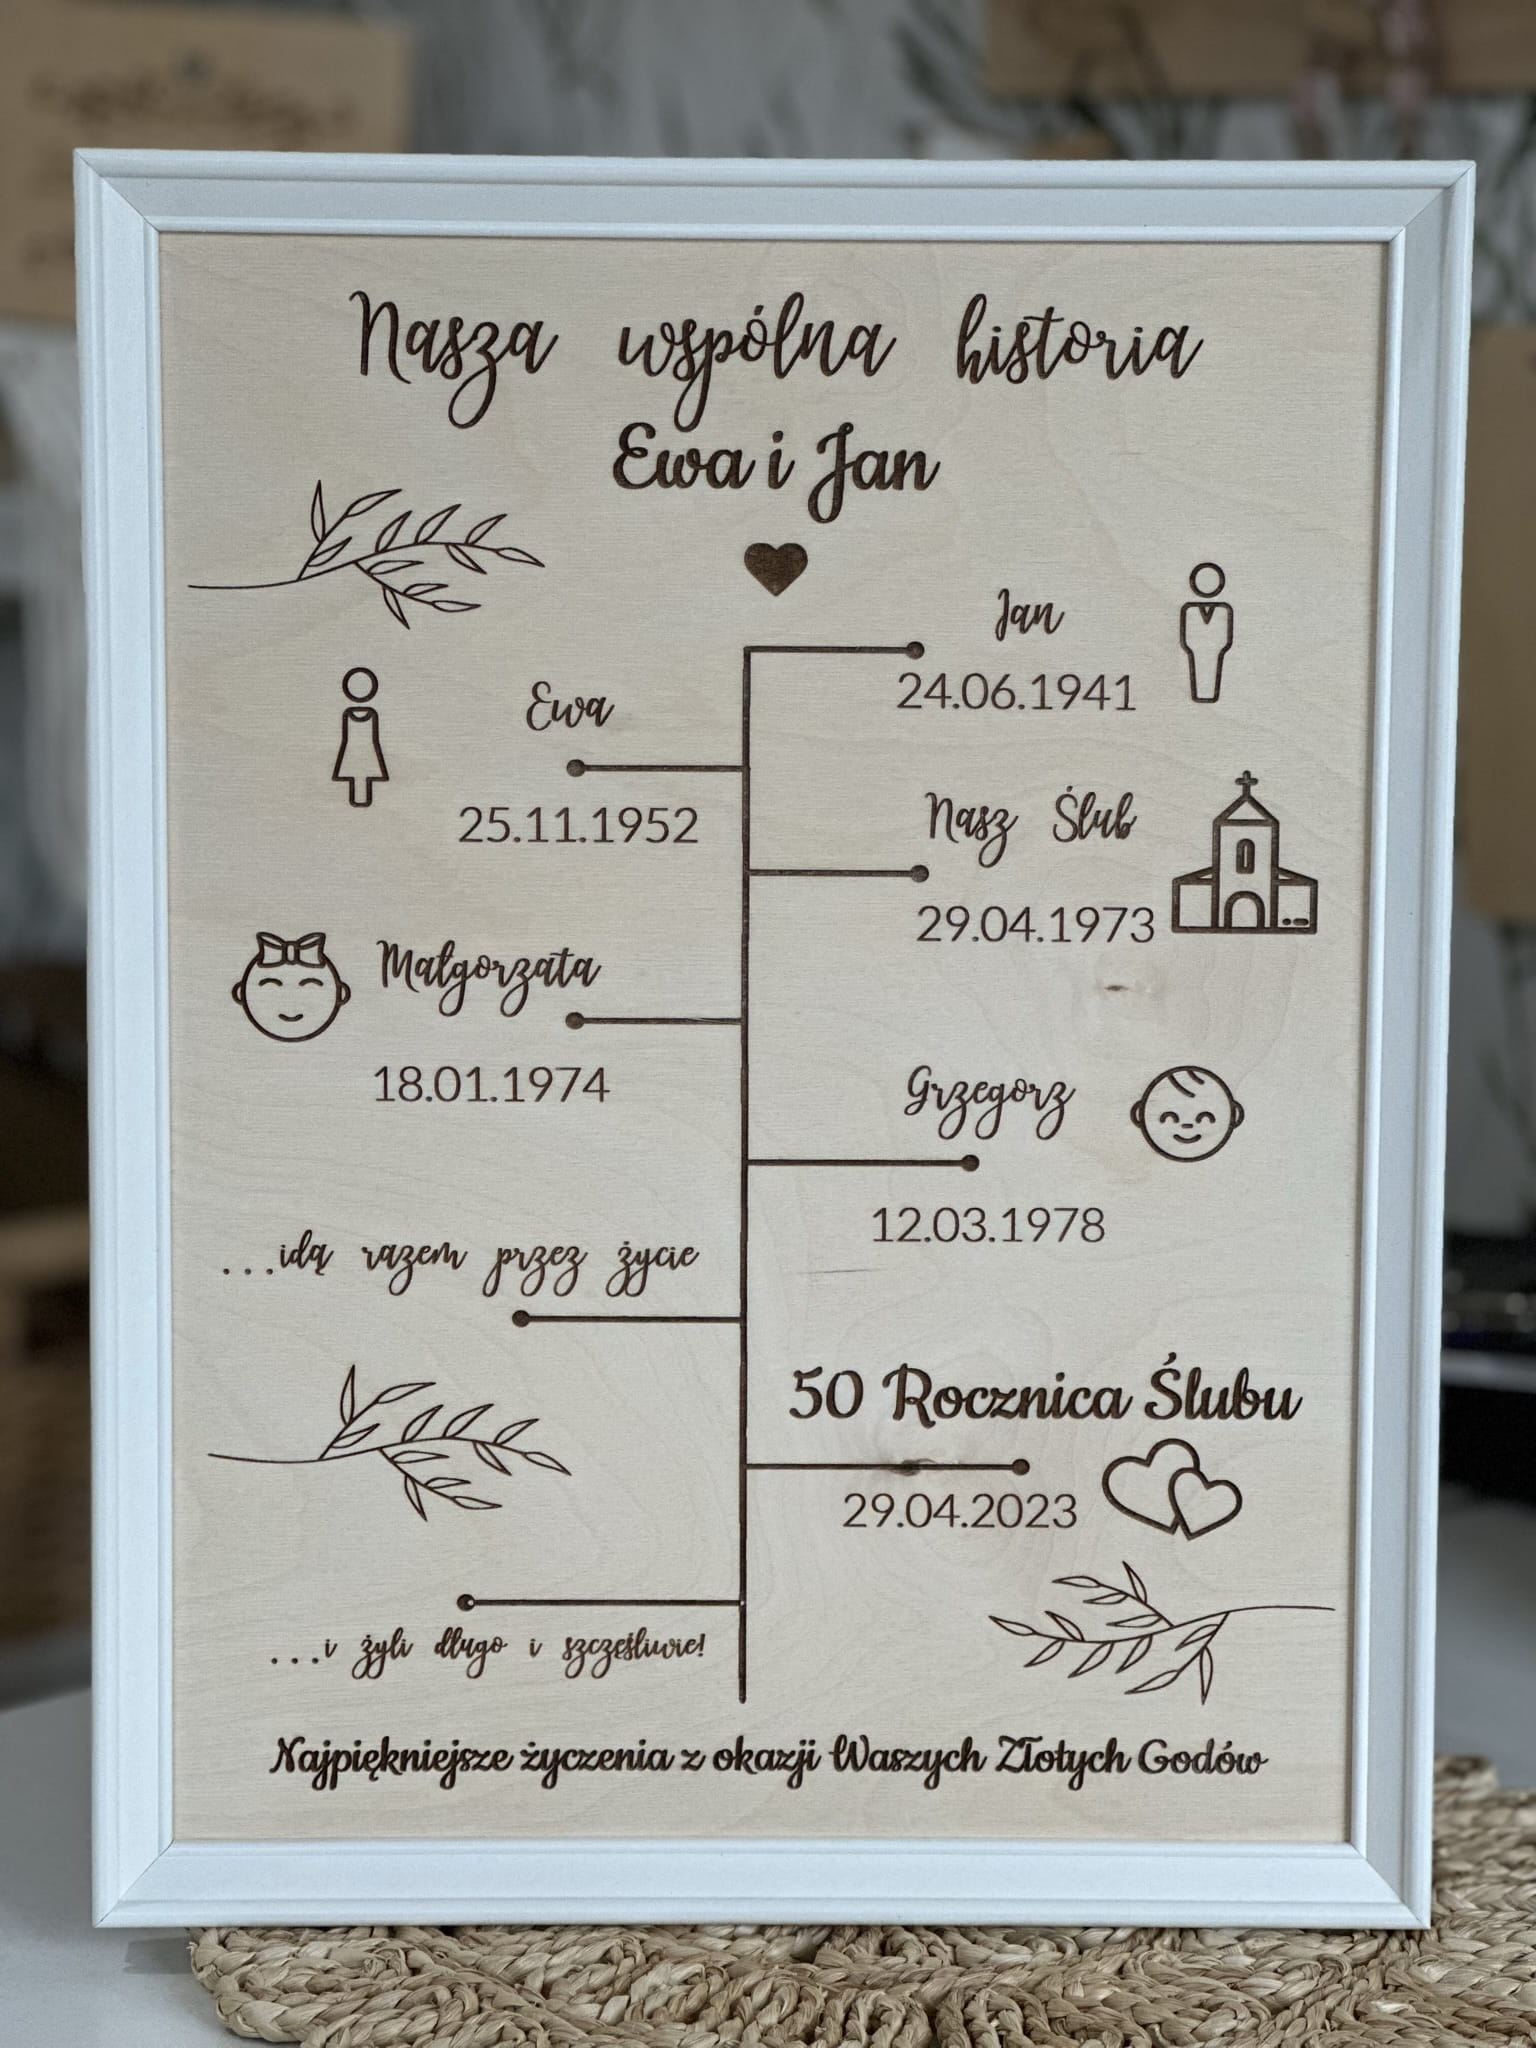 Nasza wspólna historia
Ewa i Jan
Jan
24.06.1941
Ewa
25.11.1952
Nasz Ślub
29.04.1973
Małgorzata
18.01.1974
Grzegorz
12.03.1978
...idą razem przez życie
50 Rocznica Ślubu
29.04.2023
...i żyli długo i szczęśliwie!
Najpiękniejsze życzenia z okazji Waszych Złotych Godów